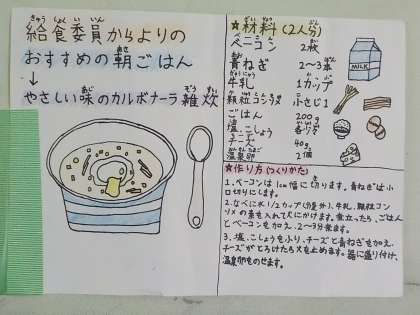 給食委員からよりの
おすすめの朝ごはん
↓
やさしい味のカルボナーラ雑炊
★材料(2人分)
ベーコン 2枚
青ねぎ 2〜3本
牛乳 1カップ
顆粒コンソメ 小さじ1
ごはん 200g
塩、こしょう 各少々
チーズ 40g
温泉卵 2個
MILK
★作り方(つくりかた)
1.ベーコンは1cm幅に切ります。青ねぎは小
口切りにします。
2.なべに水1/2カップ(分量外)、牛乳、顆粒コン
ソメの素を入れて火にかけます。煮立ったら、ごはん
とベーコンを加え、2〜3分煮ます。
3.塩、こしょうをふり、チーズと青ねぎを加え、
チーズがとろけたら火を止めます。器に盛り付け、
温泉卵をのせます。